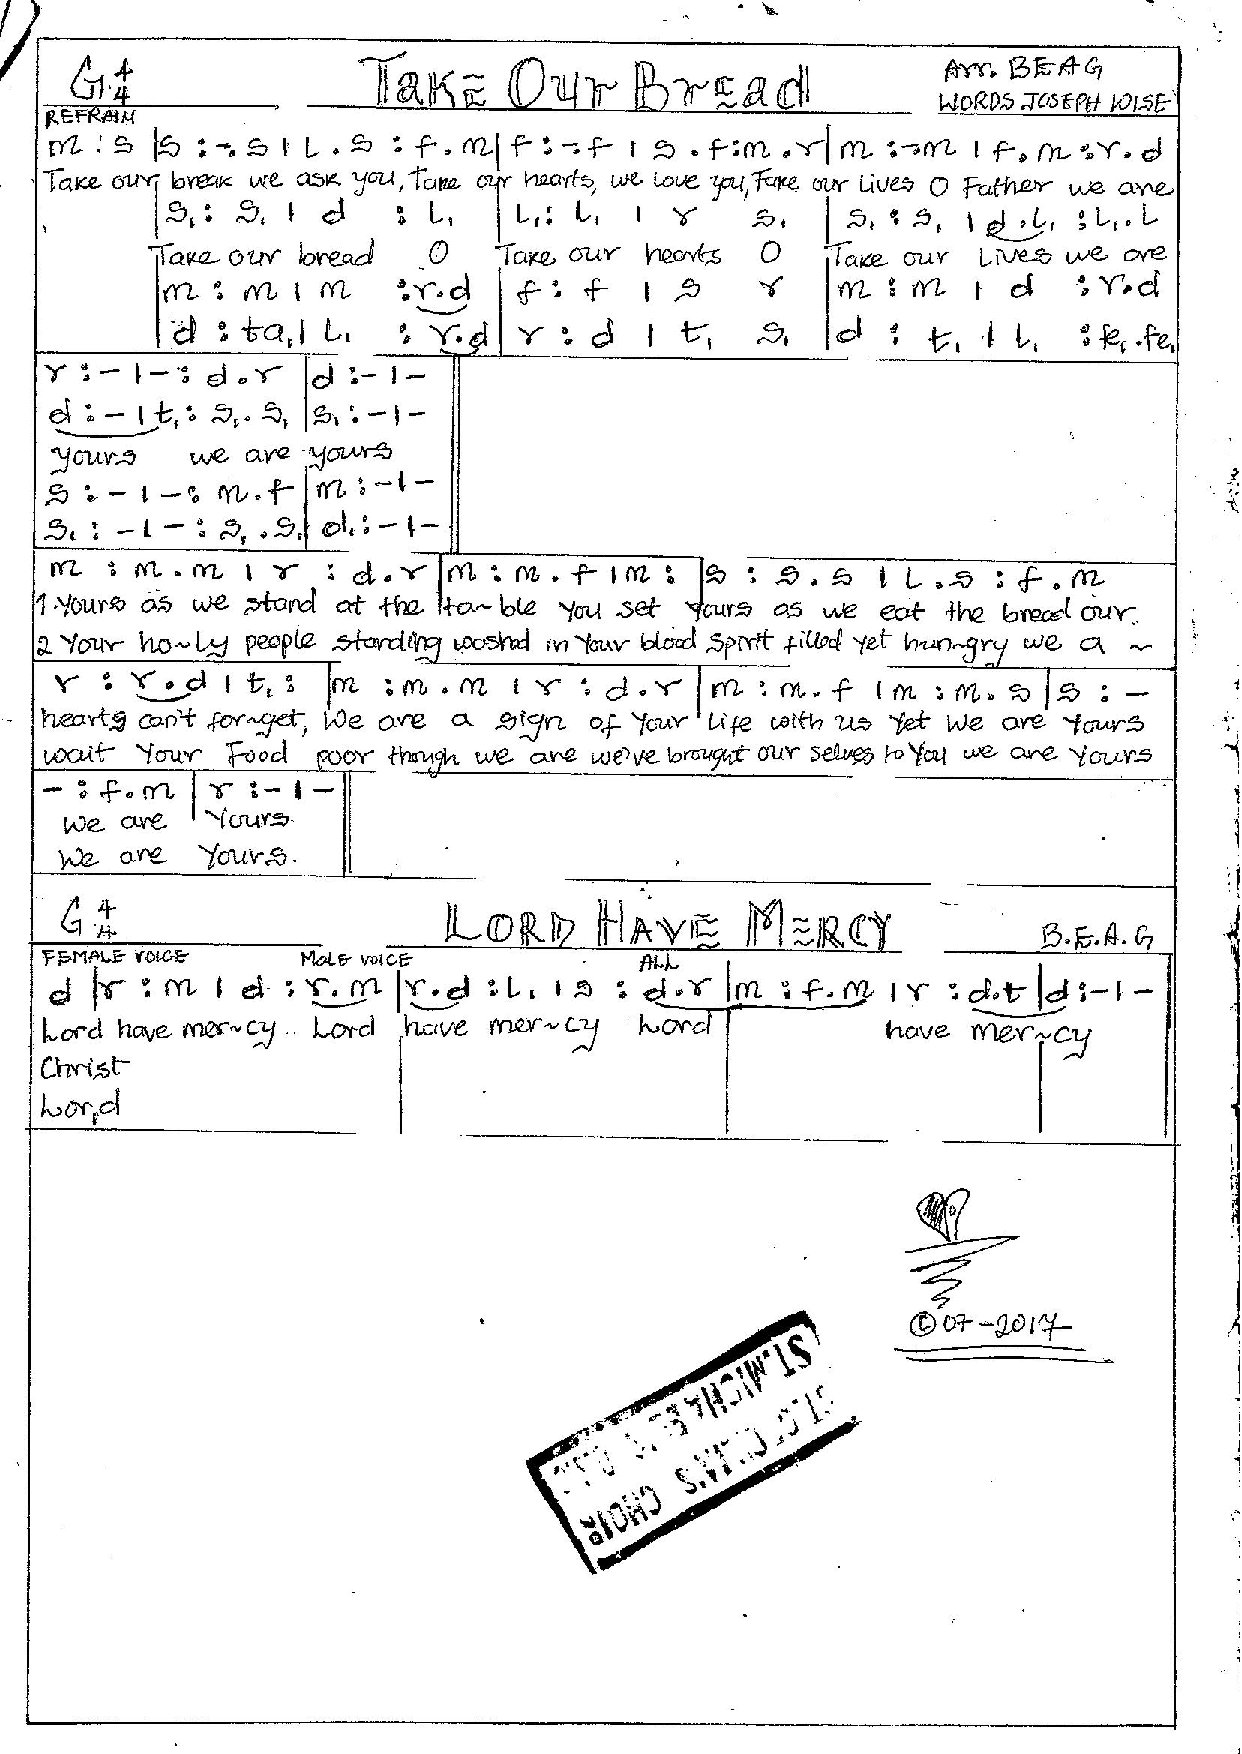 G 4/4
Take Our Bread
Arr. BEAG
WORDS JOSEPH WISE
REFRAIN
m : s |s : -. s | L . s : f . m| f : -. f | s . f : m . r| m : -. m | f . m : r . d
Take our break we ask you, Take our hearts, we love you, Take our Lives O Father we are
|s₁ : s₁ | d : L₁ | L₁ : L₁ | r s₁ | s₁ : s₁ | d . L₁ : L₁ . L
Take our bread O Take our hearts O Take our Lives we are
m : m | m : r . d | f : f | s r | m : m | d : r . d
d : ta₁ | L₁ : r . d | r : d | t₁ s₁ | d : t₁ | L₁ : fe₁ . fe₁
r : - | - : d . r | d : - | -
d : - | t₁ : s₁ . s₁ | s₁ : - | -
yours we are yours
s : - | - : m . f | m : - | -
s₁ : - | - : s₁ . s₁ | d₁ : - | -
m : m . m | r : d . r | m : m . f | m : | s : s . s | L . s : f . m
1. Yours as we stand at the ta~ble You set Yours as we eat the bread our
2 Your ho~ly people standing washed in Your blood Spirit filled yet hun~gry we a ~
r : r . d | t₁ : | m : m . m | r : d . r | m : m . f | m : m . s | s : -
hearts can't for~get, We are a sign of Your Life with us Yet We are Yours
wait Your Food poor though we are we've brought our selves to You we are Yours
- : f . m | r : - | -
We are Yours
We are Yours.
G 4/4
LORD HAVE MERCY
B.E.A.G
FEMALE VOICE MALE VOICE ALL
d | r : m | d : r . m | r . d : L₁ | s : d . r | m : f . m | r : d . t | d : - | -
Lord have mer~cy Lord have mer~cy Lord have mer~cy
Christ
Lord
© 07-2017
ST. MICHAEL'S
ST. C CHOIR